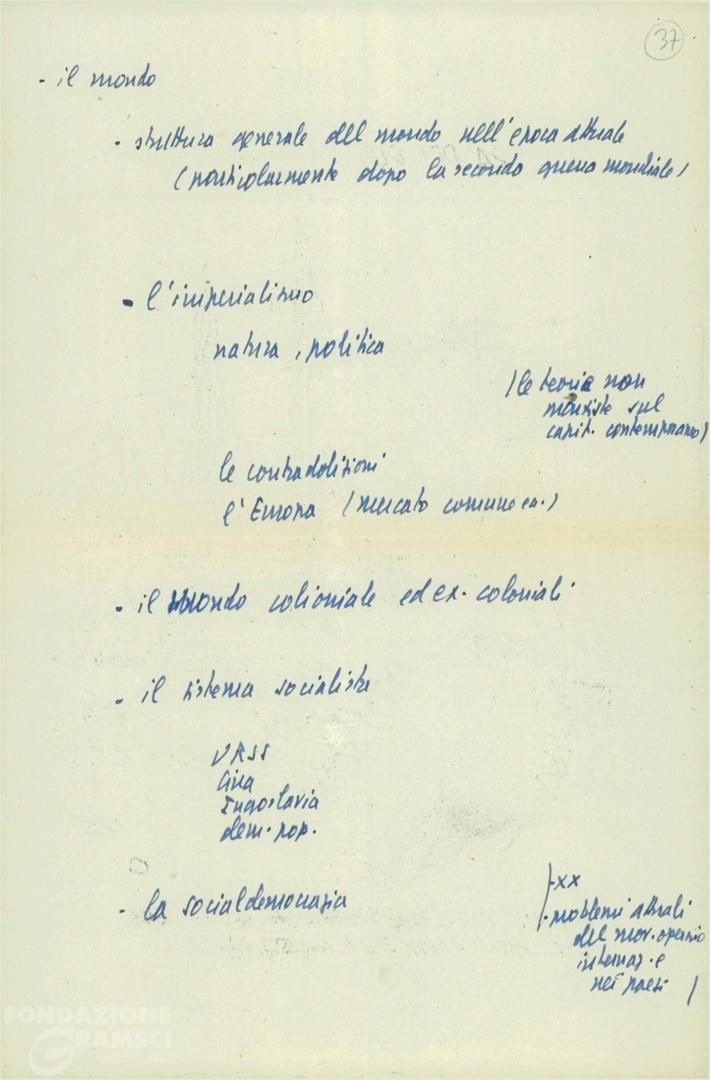 37
- il mondo
- struttura generale del mondo nell'epoca attuale
(particolarmente dopo la seconda guerra mondiale)
- l'imperialismo
natura, politica
(le teorie non
marxiste sul
capit. contemporaneo)
le contraddizioni
l'Europa (mercato comune ec.)
- il mondo coloniale ed ex-coloniali
- il sistema socialista
URSS
Cina
Iugoslavia
dem. pop.
- la socialdemocrazia
- XX
- problemi attuali
del mov. operaio
internaz. e
nei paesi )
FONDAZIONE
GRAMSCI